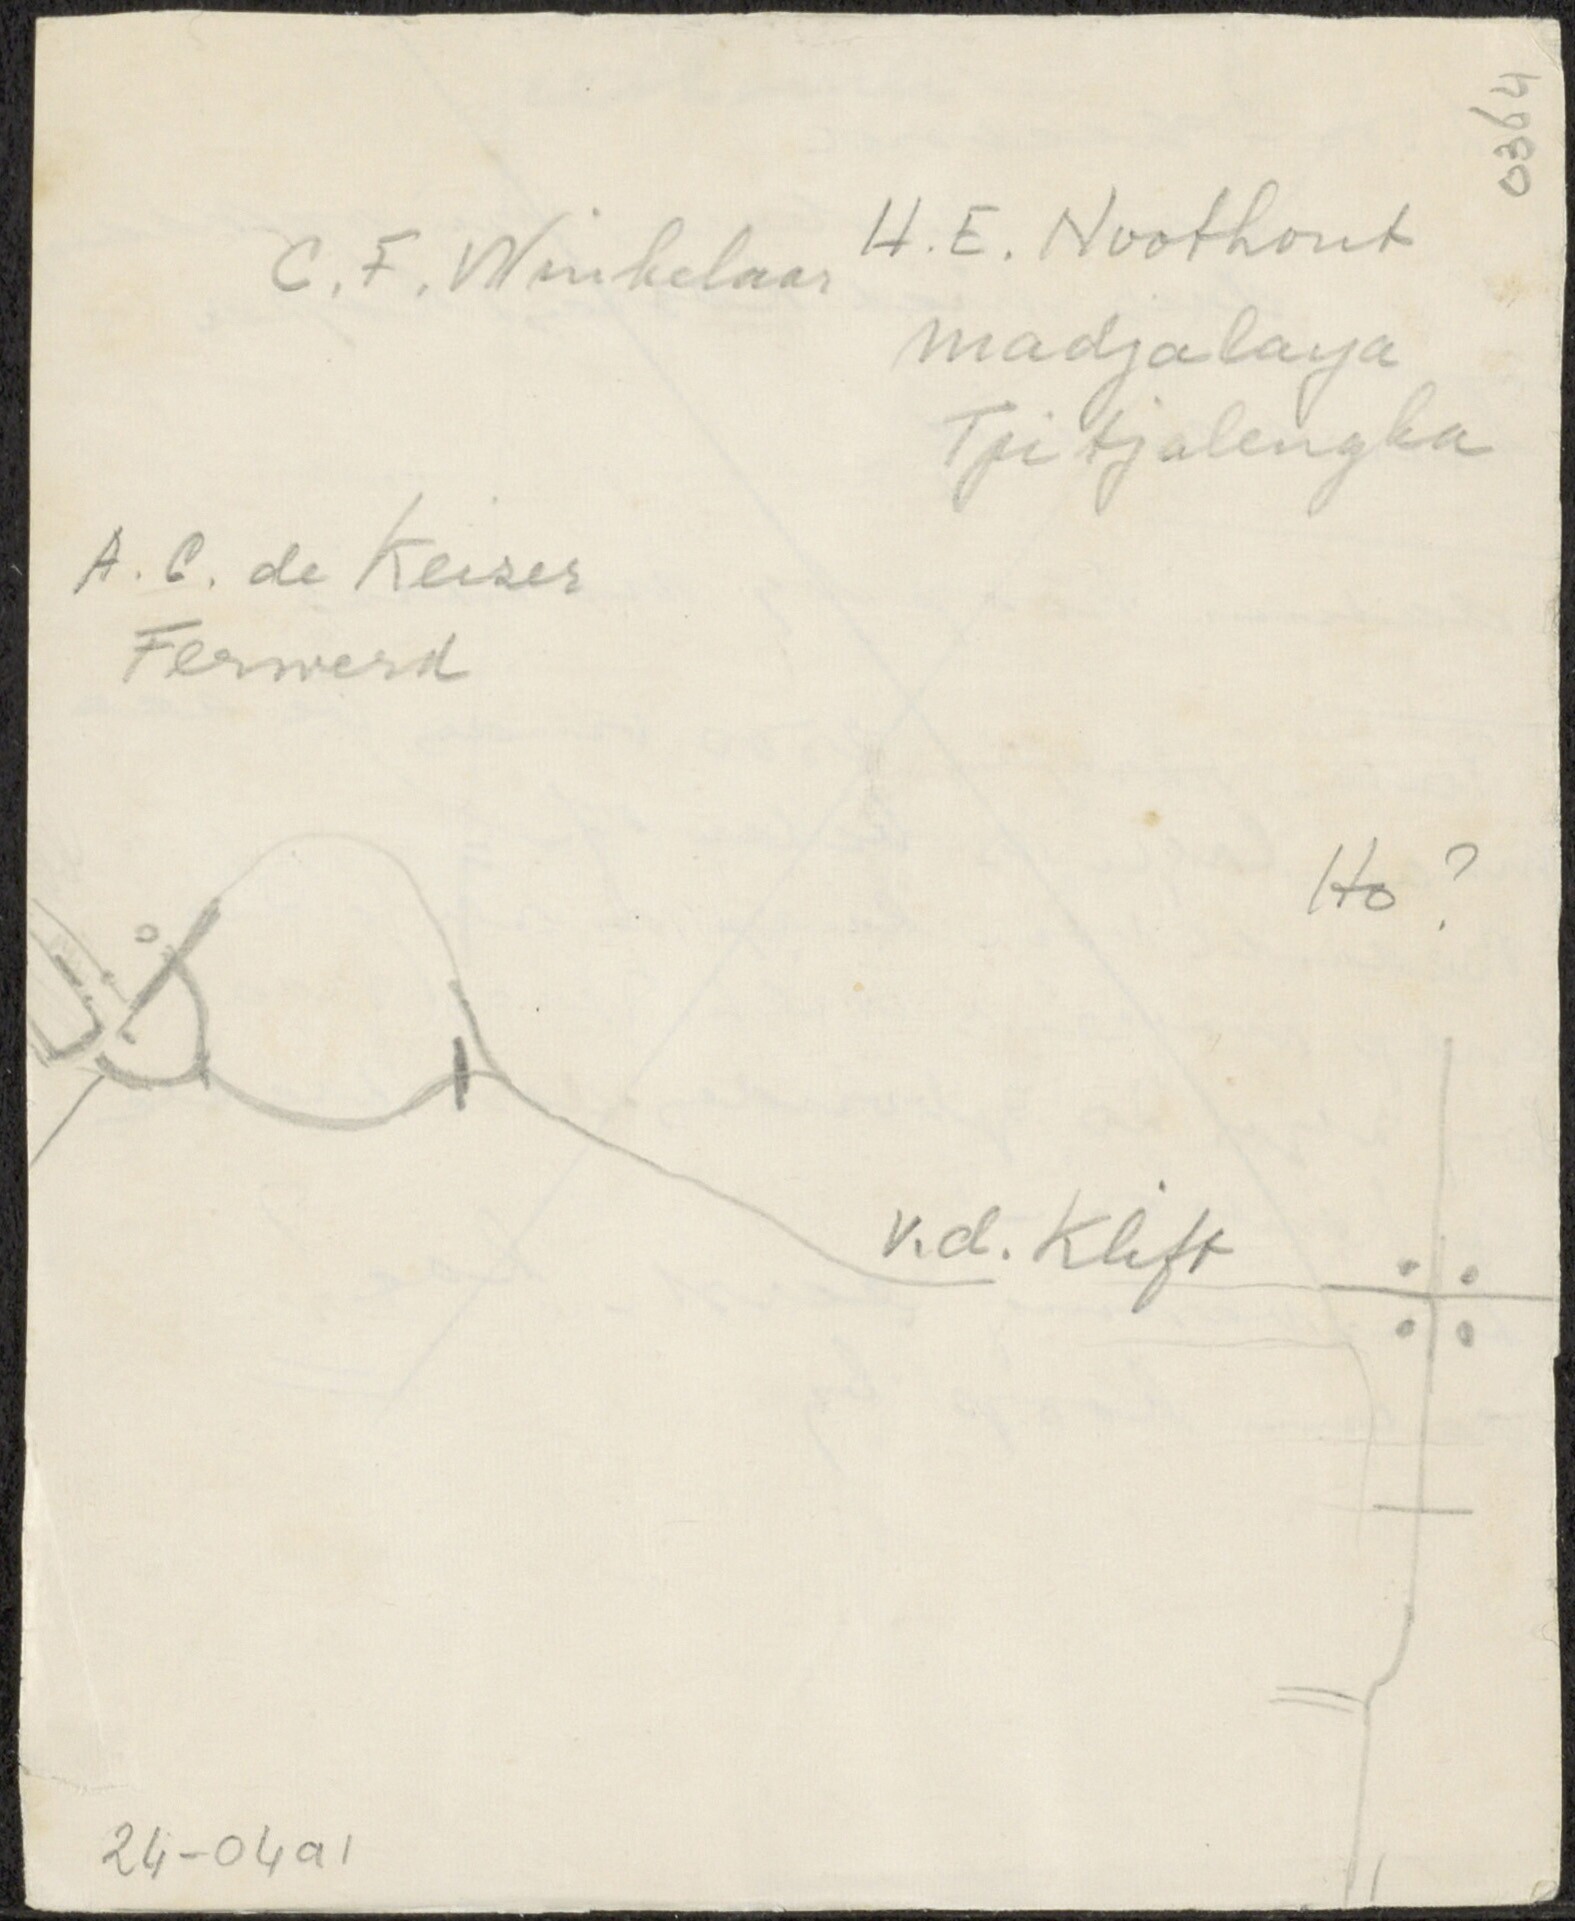 0364
C. F. Winkelaar
H. E. Noothout
Madjalaya
Tjitjalengka
A. C. de Keizer
Ferwerd
Ho ?
v.d. Klift
24-04a1